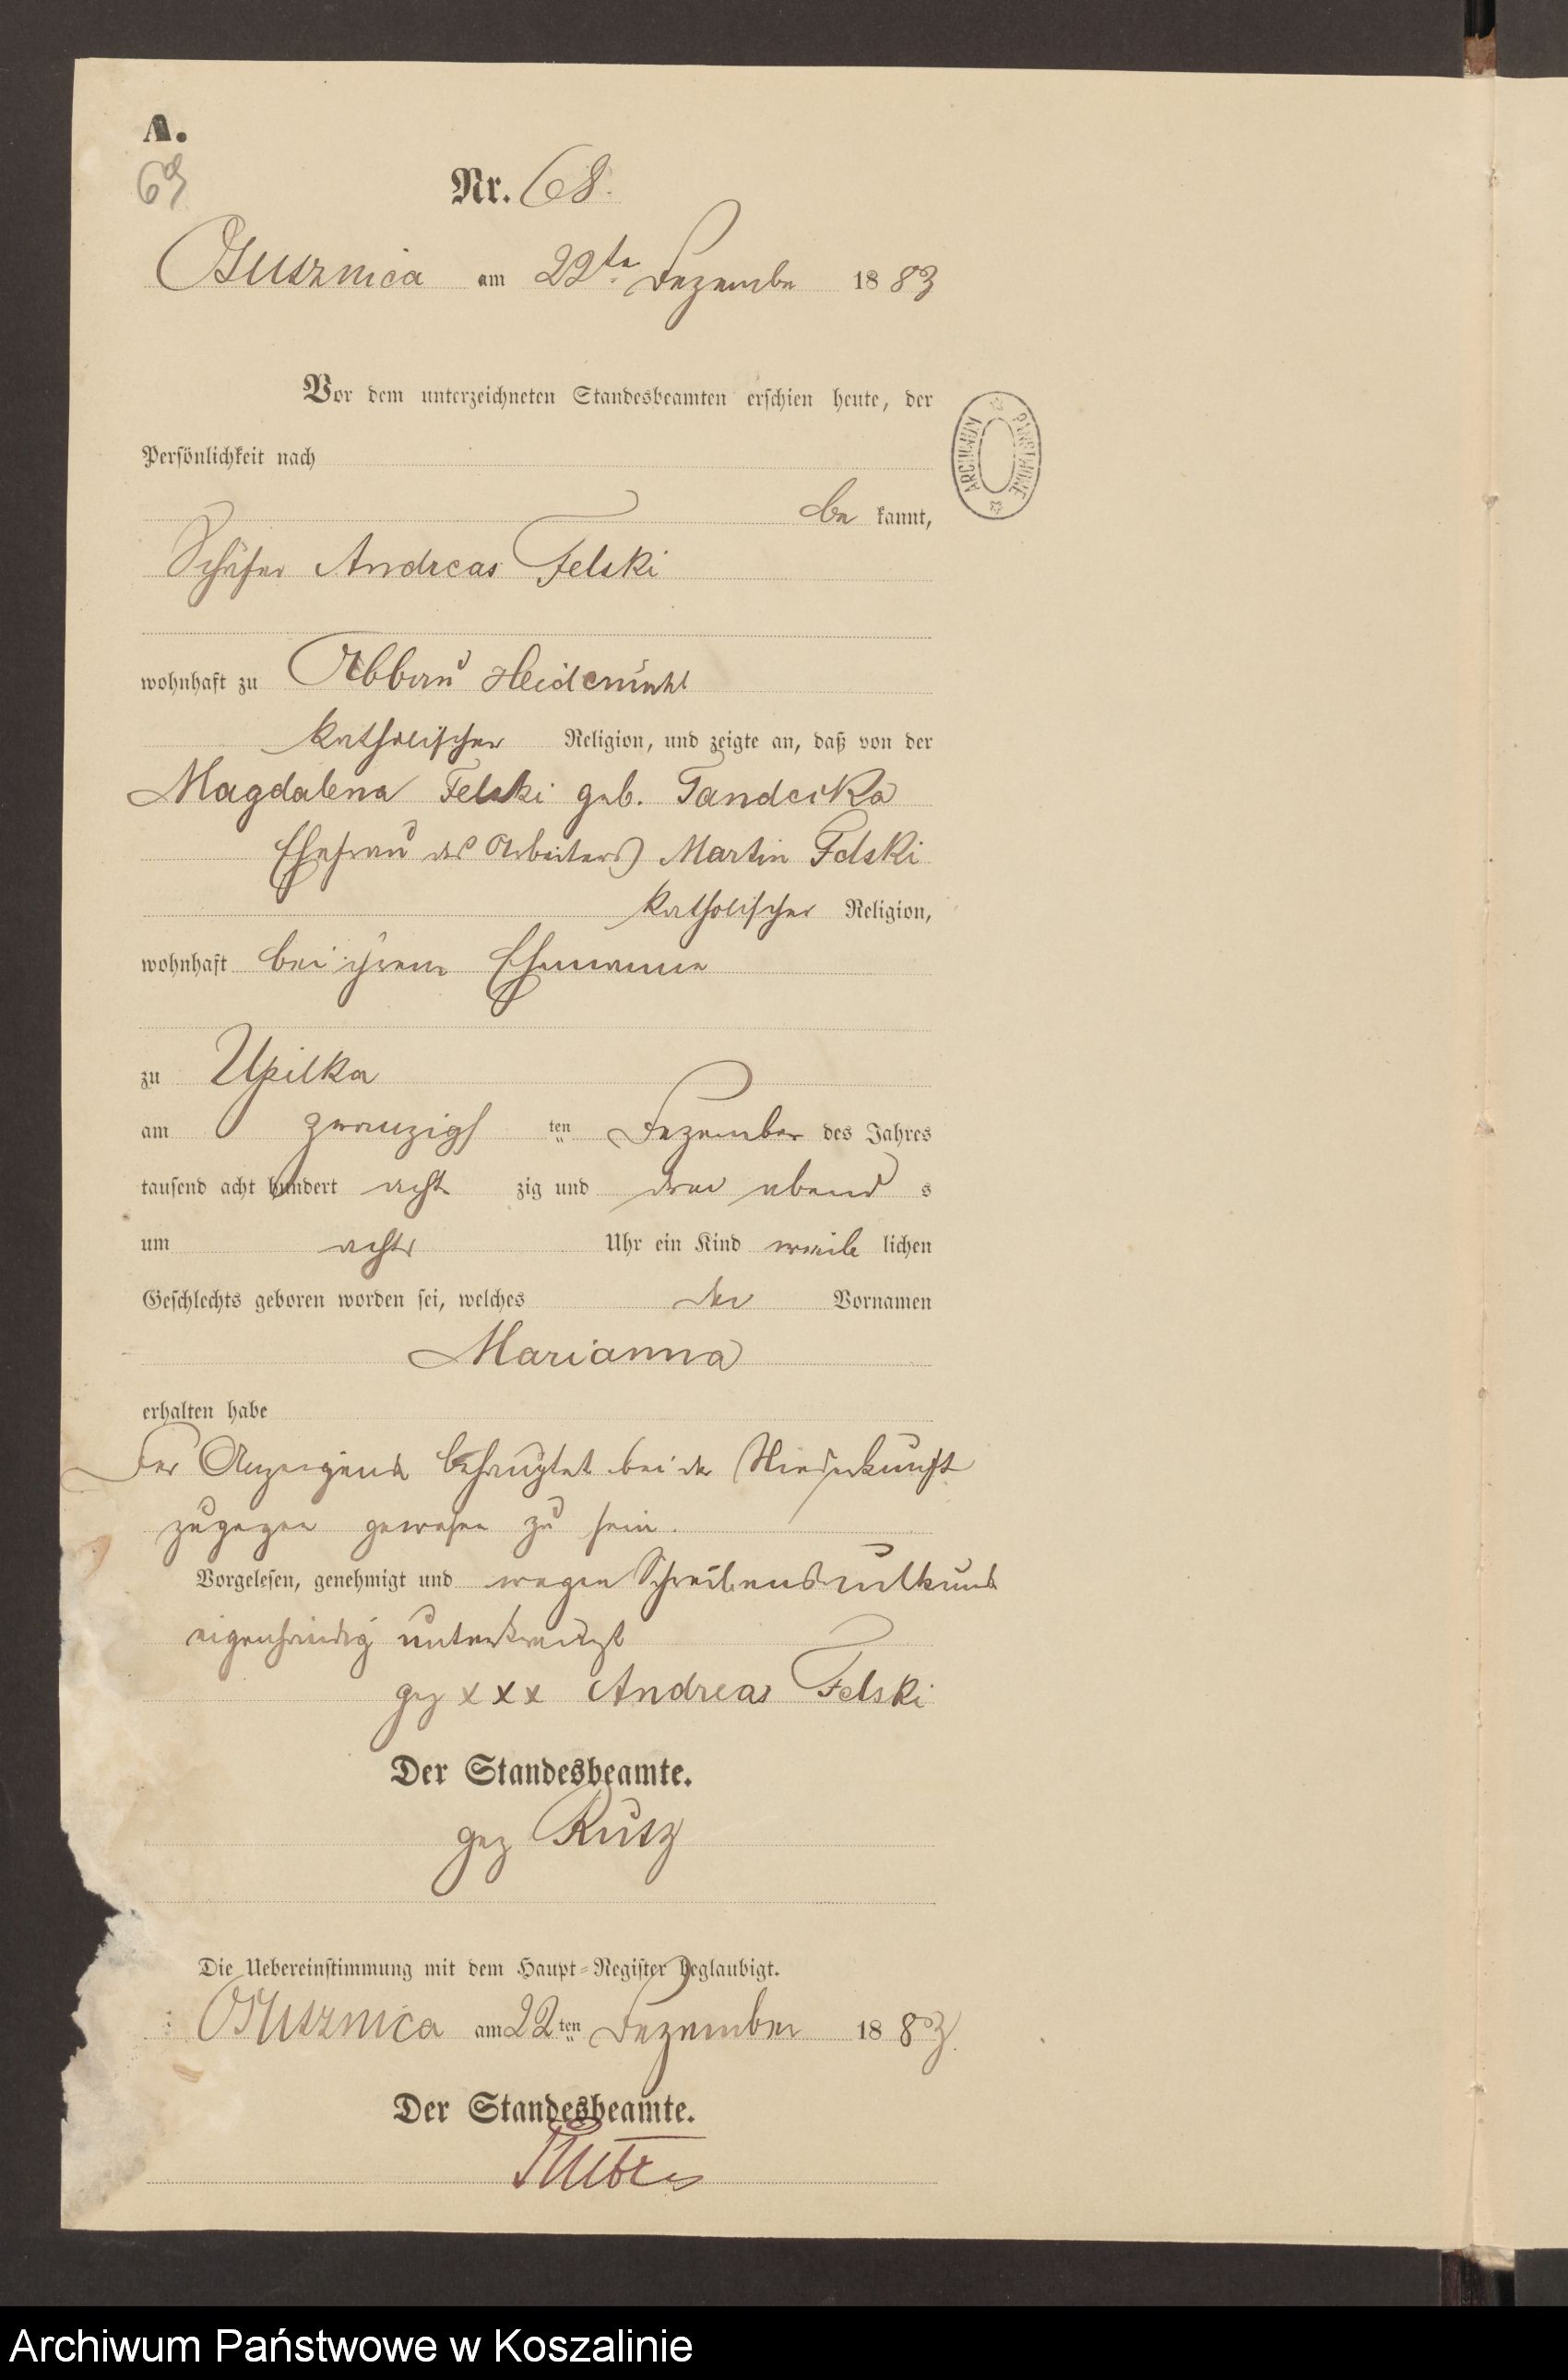 A.
69
Nr. 68.
Gusznica am 22te Dezember 1883
Vor dem unterzeichneten Standesbeamten erschien heute, der
Persönlichkeit nach
be kannt,
Schäfer Andreas Felski
wohnhaft zu Abbau Heidemühl
katholischer Religion, und zeigte an, daß von der
Magdalena Felski geb. Tandecka
Ehefrau des Arbeiters Martin Felski
katholischer Religion,
wohnhaft bei ihrem Ehemanne
zu Upilka
am zwanzigs ten Dezember des Jahres
tausend acht hundert acht zig und drei abend s
um acht Uhr ein Kind weib lichen
Geschlechts geboren worden sei, welches den Vornamen
Marianna
erhalten habe
Der Anzeigende behauptet bei der Niederkunft
zugegen gewesen zu sein.
Vorgelesen, genehmigt und wegen Schreibensunkunde
eigenhändig unterkreuzt
gez xxx Andreas Felski
Der Standesbeamte.
gez Rutz
Die Uebereinstimmung mit dem Haupt-Register beglaubigt.
Gusznica am 22ten Dezember 1883.
Der Standesbeamte.
ARCHIWUM PAŃSTWOWE
Archiwum Państwowe w Koszalinie